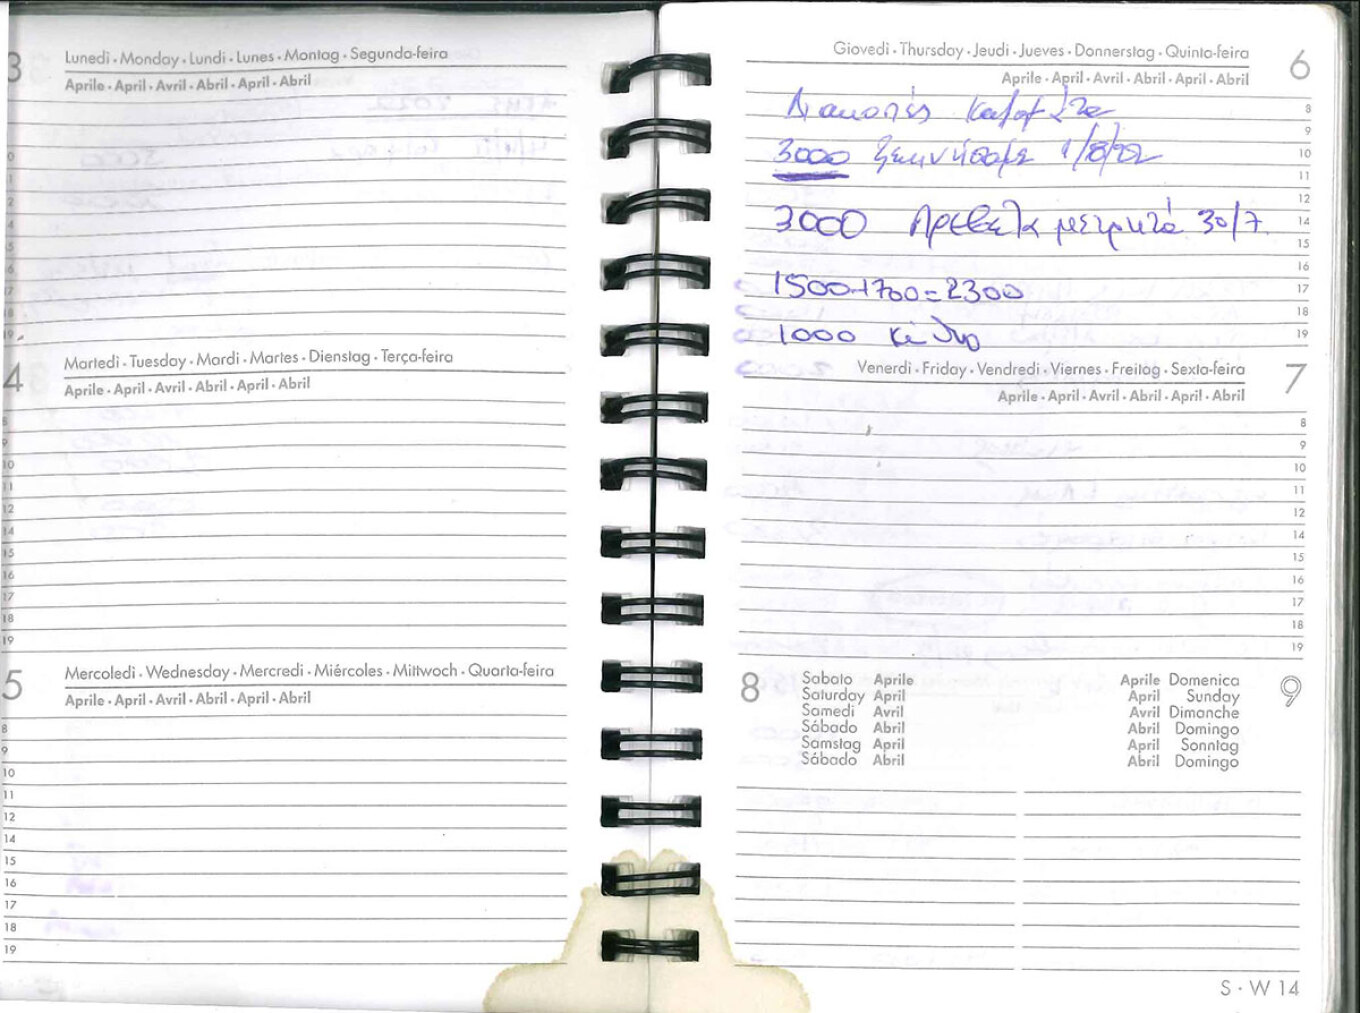 3
Lunedì · Monday · Lundi · Lunes · Montag · Segunda-feira
Aprile · April · Avril · Abril · April · Abril
4
Martedì · Tuesday · Mardi · Martes · Dienstag · Terça-feira
Aprile · April · Avril · Abril · April · Abril
8
9
10
11
12
14
15
16
17
18
19
5
Mercoledì · Wednesday · Mercredi · Miércoles · Mittwoch · Quarta-feira
Aprile · April · Avril · Abril · April · Abril
8
9
10
11
12
14
15
16
17
18
19
Giovedì · Thursday · Jeudi · Jueves · Donnerstag · Quinta-feira
6
Aprile · April · Avril · Abril · April · Abril
8
Διακοπές
9
3000 ξεκινήσαμε 1/8/22
10
11
12
3000 μετρητά 30/7
14
15
16
1500+1700=2300
17
18
1000
19
Venerdì · Friday · Vendredi · Viernes · Freitag · Sexta-feira
7
Aprile · April · Avril · Abril · April · Abril
8
9
10
11
12
14
15
16
17
18
19
8
Sabato Aprile
Saturday April
Samedi Avril
Sábado Abril
Samstag April
Sábado Abril
Aprile Domenica
April Sunday
Avril Dimanche
Abril Domingo
April Sonntag
Abril Domingo
9
S · W 14